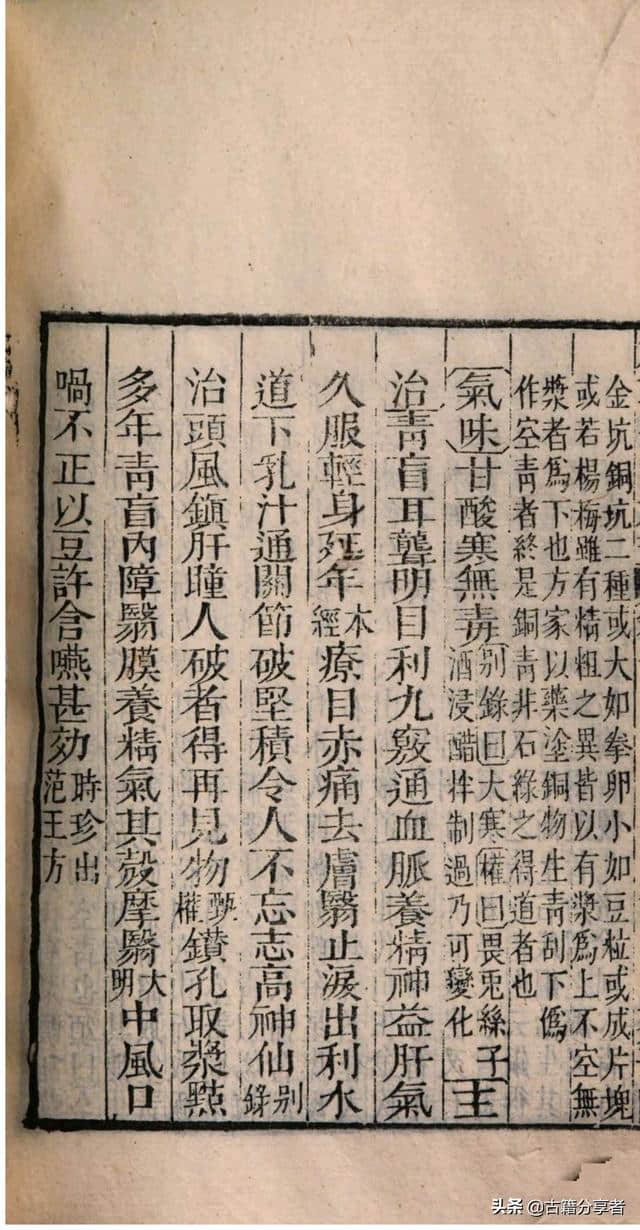 金坑銅坑二種或大如拳卵小如豆粒或成片塊
或若楊梅雖有精粗之異皆以有漿爲上不空無
漿者爲下也方家以藥塗銅物生青刮下僞
作空青者終是銅青非石綠之得道者也
氣味甘酸寒無毒別錄曰大寒權曰畏兎絲子酒浸醋拌制過乃可變化主
治靑盲耳聾明目利九竅通血脈養精神益肝氣
久服輕身延年本經療目赤痛去膚翳止淚出利水
道下乳汁通關節破堅積令人不忘志高神仙別錄
治頭風鎭肝瞳人破者得再見物甄權鑽孔取漿點
多年靑盲內障翳膜養精氣其殼摩翳大明中風口
喎不正以豆許含嚥甚効時珍出范王方
头条@古籍分享者